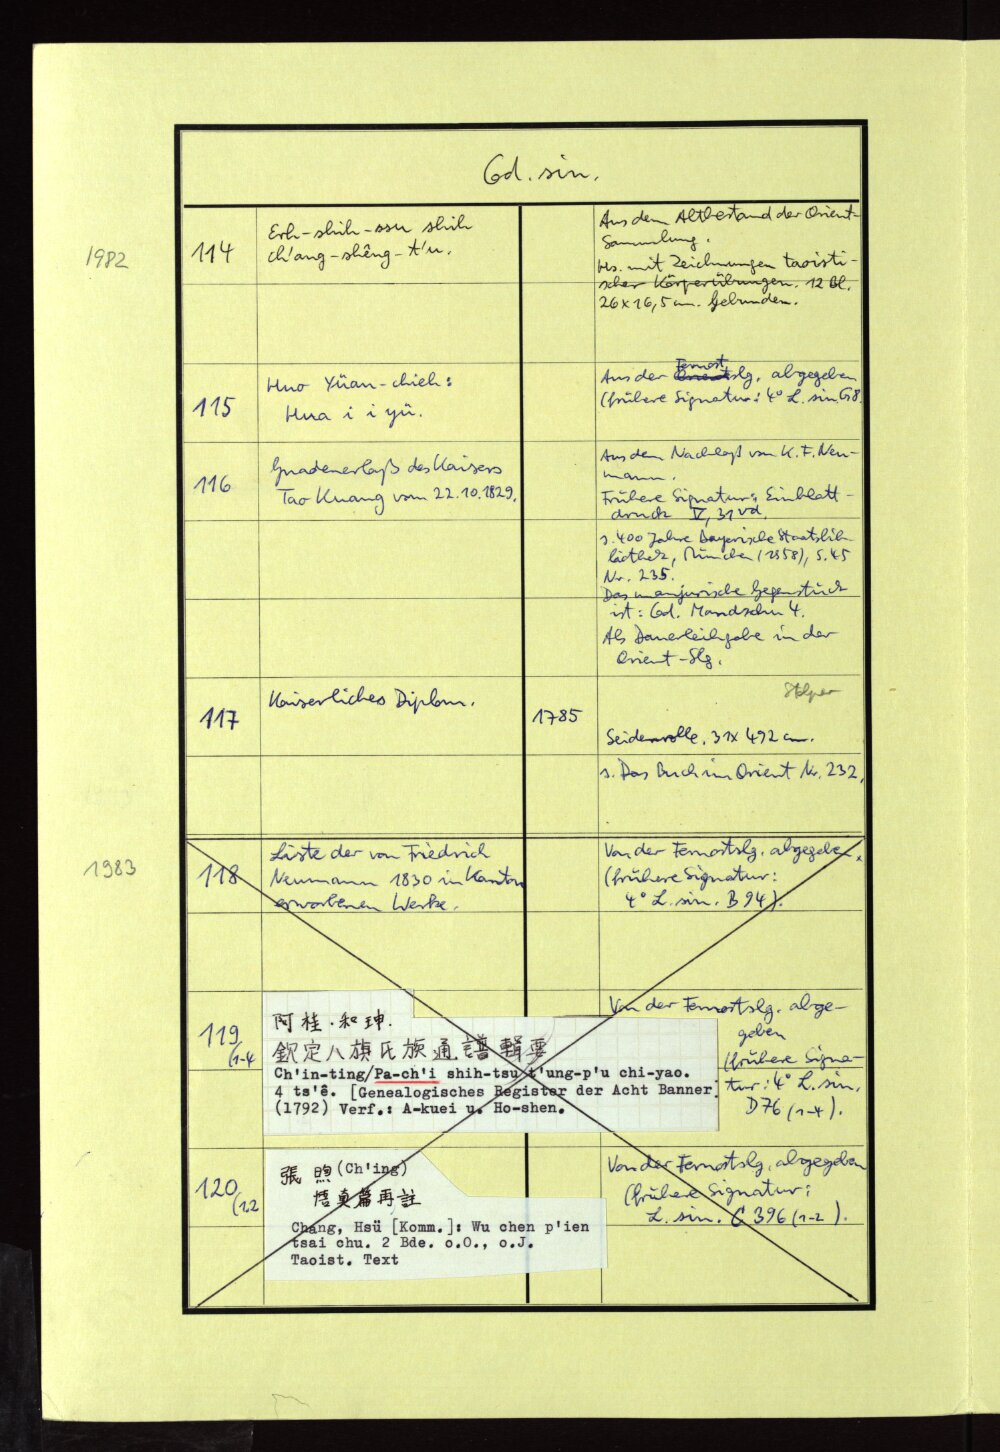 Cod. sin.
1982
114
Erh-shih-ssu shih
ch'ang-shêng-t'u.
Aus dem Altbestand der Orient-
Sammlung.
Hs. mit Zeichnungen taoisti-
scher Körperübungen. 12 Bl.
26x16,5 cm. Gebunden.
115
Huo Yüan-chieh:
Hua i i yü.
Fernost
Aus der Orientslg. abgegeben
(frühere Signatur: 4° L. sin. G 8.
116
Gnadenerlaß des Kaisers
Tao Kuang vom 22.10.1829.
Aus dem Nachlaß von K. F. Neu-
mann.
Frühere Signatur: Einblatt-
druck V, 31 vd.
s. 400 Jahre Bayerische Staatsbib-
liothek, München (1958), S. 45
Nr. 235.
Das manjurische Gegenstück
ist: Cod. Mandschu 4.
Als Dauerleihgabe in der
Orient-Slg.
117
Kaiserliches Diplom.
1785
Seidenrolle. 31x492 cm.
s. Das Buch im Orient Nr. 232.
1983
118
Liste der von Friedrich
Neumann 1830 in Kanton
erworbenen Werke.
Von der Fernostslg. abgegeben.
(frühere Signatur:
4° L. sin. B 94).
119
(1-4
阿桂.和珅.
欽定八旗氏族通譜輯要
Ch'in-ting/Pa-ch'i shih-tsu t'ung-p'u chi-yao.
4 ts'ê. [Genealogisches Register der Acht Banner]
(1792) Verf.: A-kuei u. Ho-shen.
Von der Fernostslg. abge-
geben
(frühere Signa-
tur: 4° L. sin.
D 76 (1-4).
120
(1.2
張 煦 (Ch'ing)
悟真篇再註
Chang, Hsü [Komm.]: Wu chen p'ien
tsai chu. 2 Bde. o.O., o.J.
Taoist. Text
Von der Fernostslg. abgegeben
(frühere Signatur:
L. sin. C 396 (1-2).